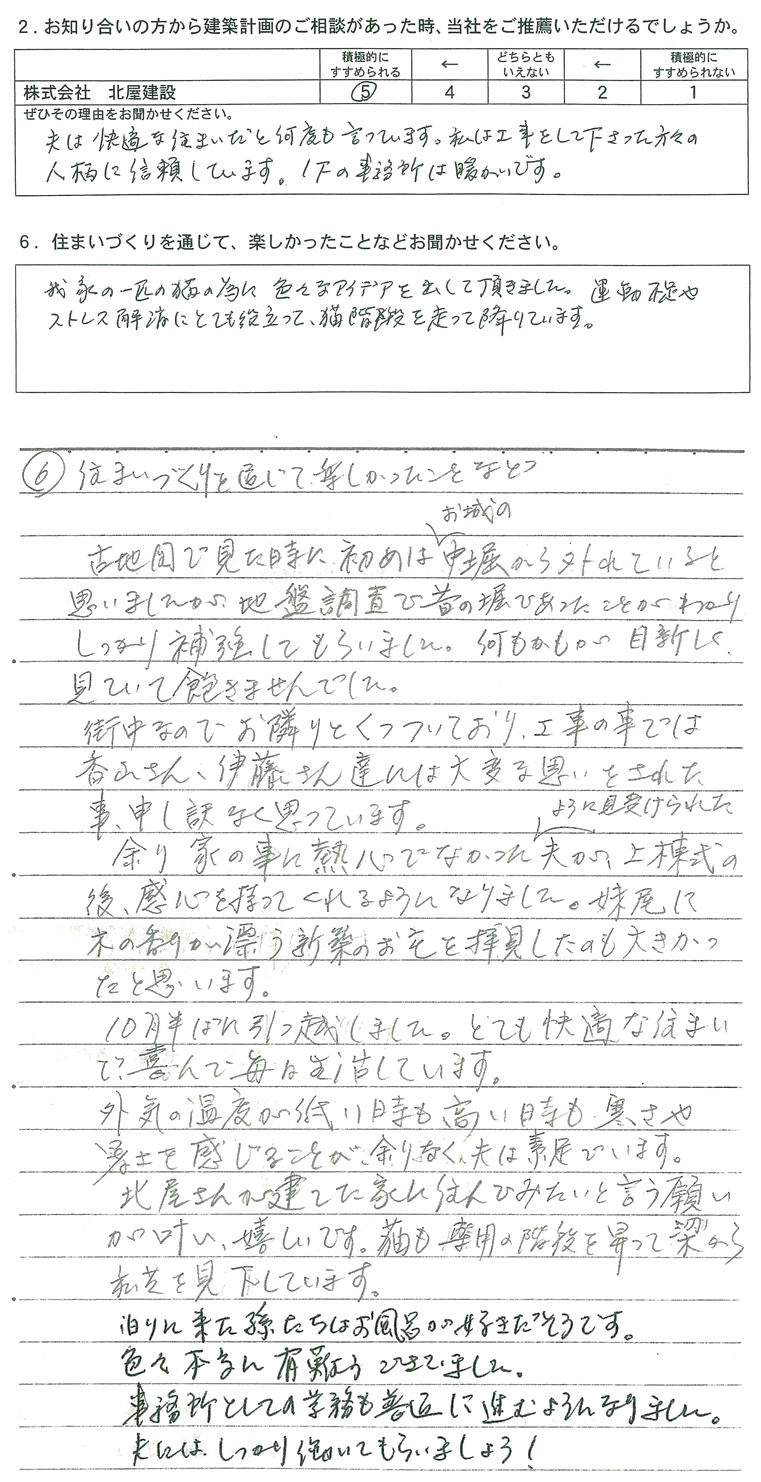 2. お知り合いの方から建築計画のご相談があった時、当社をご推薦いただけるでしょうか。
積極的にすすめられる ← どちらともいえない ← 積極的にすすめられない
株式会社 北屋建設 5 4 3 2 1
ぜひその理由をお聞かせください。
夫は快適な住まいだと何度も言っています。私は工事をして下さった方々の
人柄に信頼しています。1Fの事務所は暖かいです。
6. 住まいづくりを通じて、楽しかったことなどお聞かせください。
我家の一匹の猫の為に色々なアイデアを出して頂きました。運動不足や
ストレス解消にとても役立って、猫階段を走って降りています。
⑥ 住まいづくりを通じて楽しかったことなど
お城の
古地図で見た時に初めは中堀から外れていると
思いましたが、地盤調査で昔の堀であったことがわかり
しっかり補強してもらいました。何もかもが目新しく、
見ていて飽きませんでした。
街中なのでお隣りとくっついており、工事の事では
香山さん、伊藤さん達には大変な思いをされた
事、申し訳なく思っています。
ように見受けられた
余り家の事に熱心でなかった夫が、上棟式の
後、感心を持ってくれるようになりました。妹尾に
木の香りが漂う新築のお宅を拝見したのも大きかっ
たと思います。
10月半ばに引っ越しました。とても快適な住まい
で喜んで毎日生活しています。
外気の温度が低い時も高い時も寒さや
暑さを感じることが余りなく、夫は素足でいます。
北屋さんが建てた家に住んでみたいと言う願い
が叶い、嬉しいです。猫も専用の階段を昇って梁から
私達を見下しています。
泊りに来た孫たちはお風呂が好きだそうです。
色々本当に有難うございました。
事務所としての業務も普通に進むようになりました。
夫にはしっかり働いてもらいましょう!